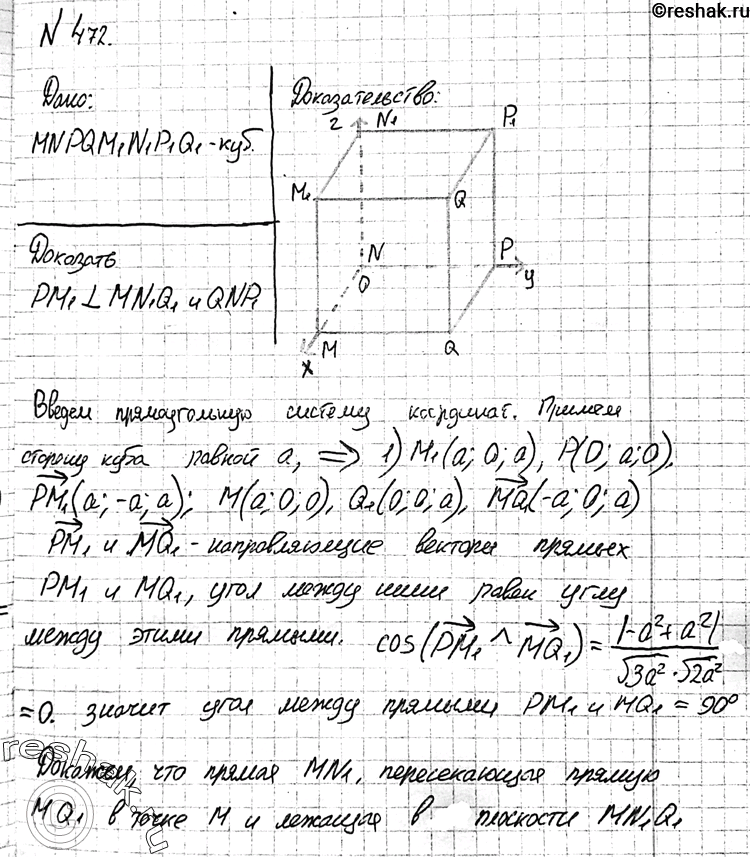 ©reshak.ru
N 472.
Дано:
MNPQM₁N₁P₁Q₁ - куб.
Доказать
PM₁ ⊥ MN₁Q₁ и QNP₁
Доказательство:
z N₁ P₁
M₁ Q
N P
O y
M Q
x
Введем прямоугольную систему координат. Примем
сторону куба равной a, ⟹ 1) M₁(a; 0; a), P(0; a; 0),
PM₁(a; -a; a); M(a; 0; 0), Q₁(0; 0; a), MQ₁(-a; 0; a)
PM₁ и MQ₁ - направляющие вектора прямых
PM₁ и MQ₁, угол между ними равен углу
между этими прямыми. cos(PM₁ ^ MQ₁) = |-a²+a²| / √3a² · √2a²
= 0. значит угол между прямыми PM₁ и MQ₁ = 90°
Докажем, что прямая MN₁, пересекающая прямую
MQ₁ в точке M и лежащая в плоскости MN₁Q₁
reshak.ru